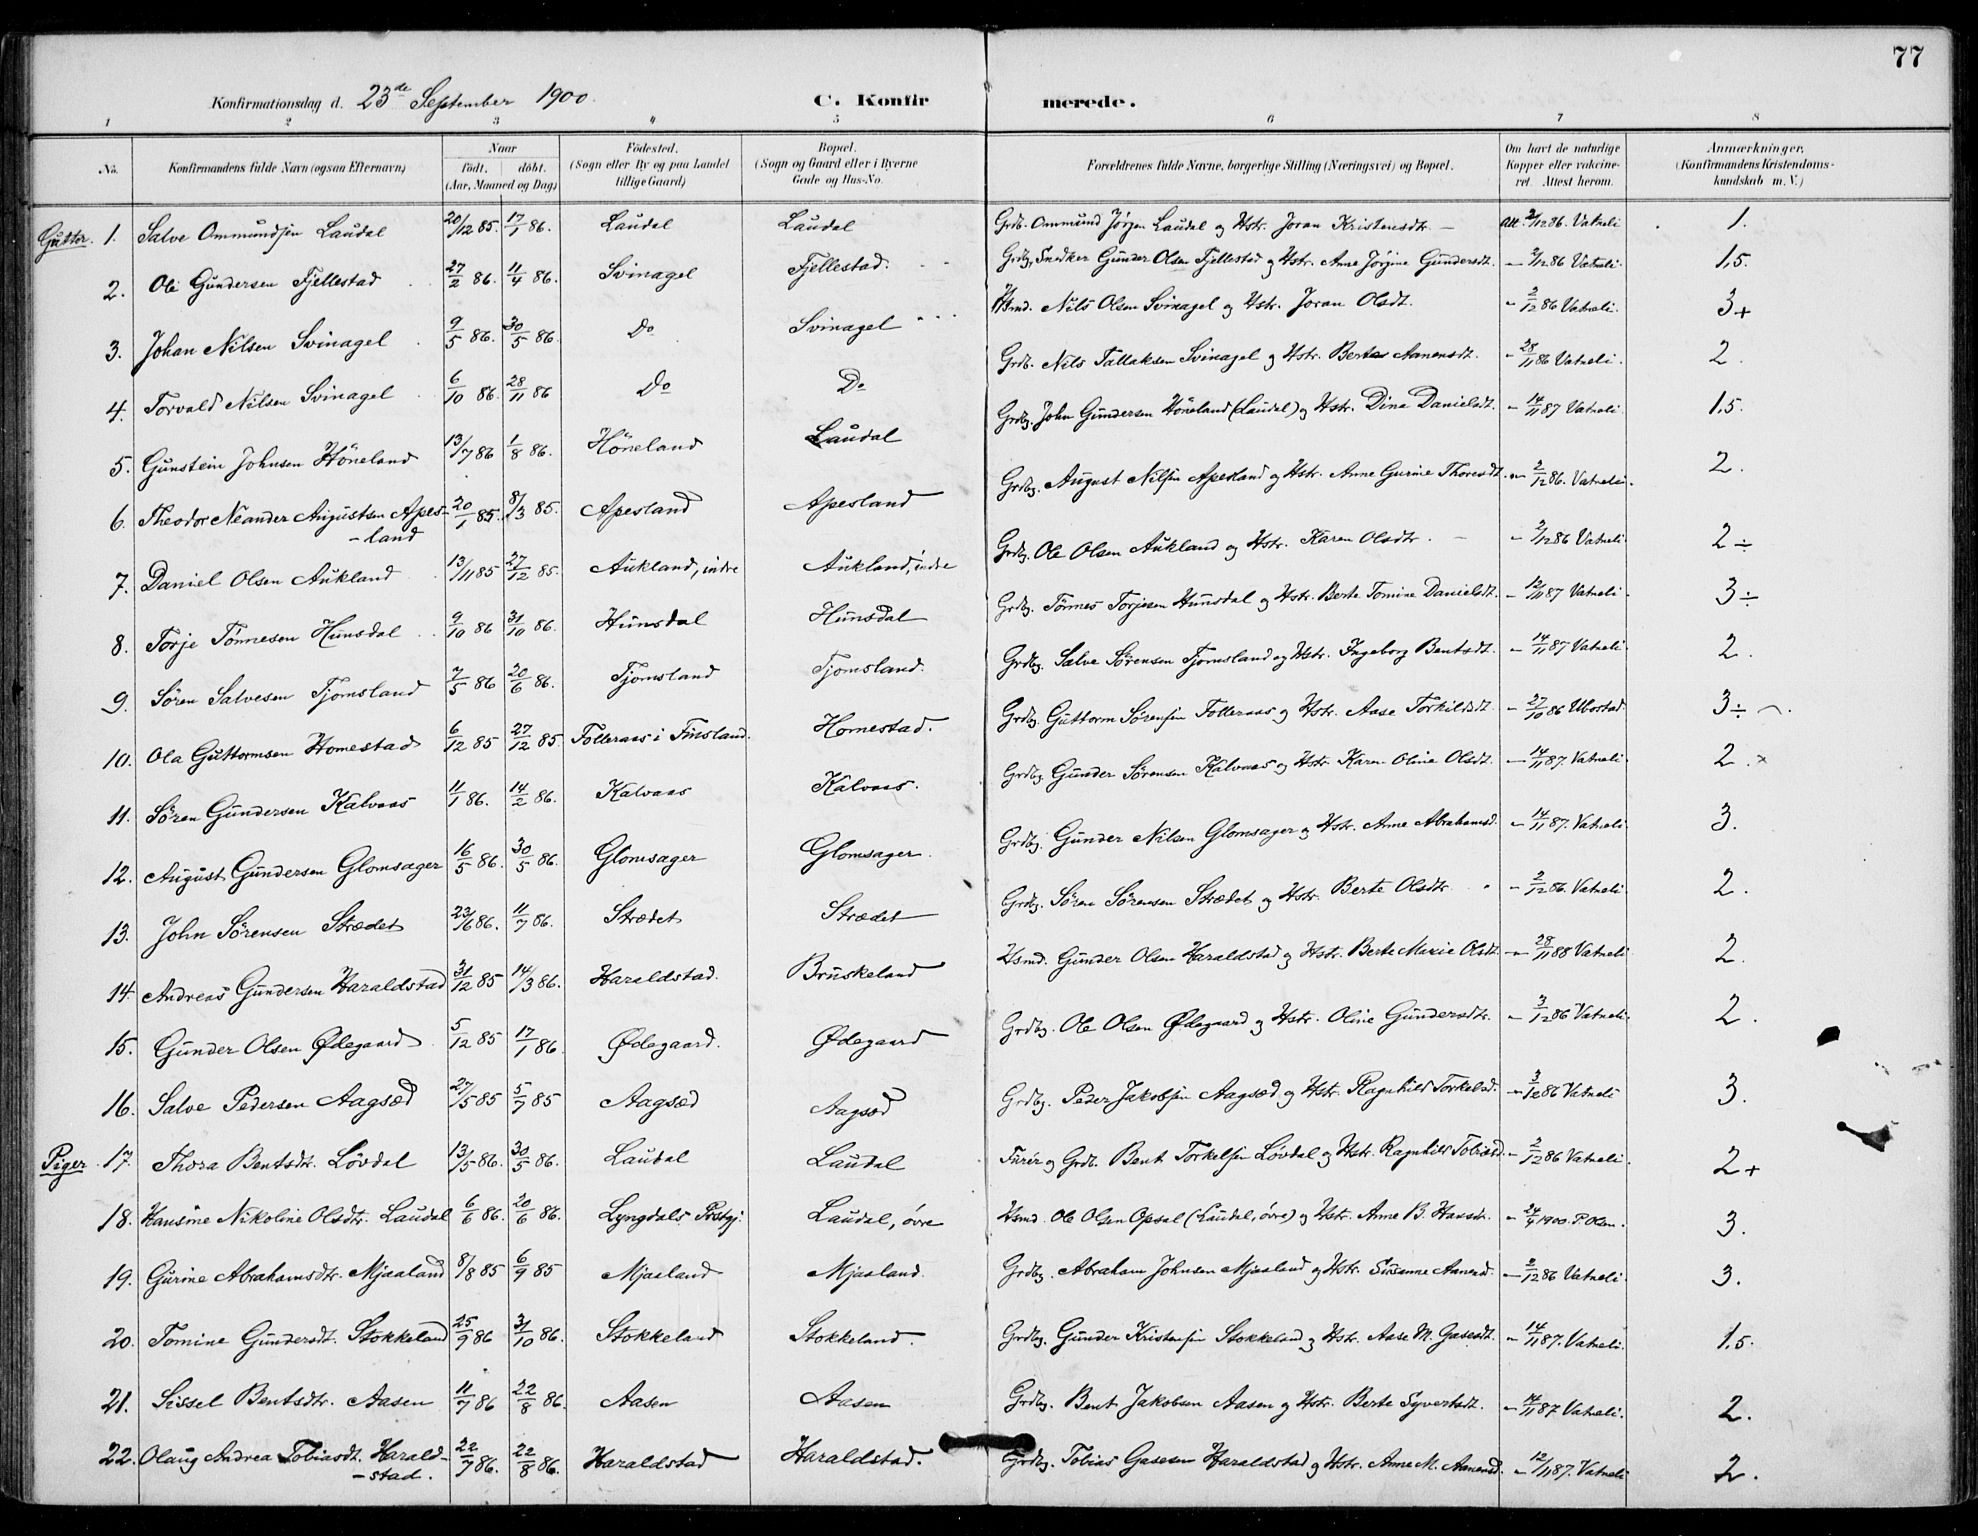 77
Konfirmationsdag d. 23de September 1900. C. Konfirmerede.
1 2 3 4 5 6 7 8
No. Konfirmandens fulde Navn (ogsaa Efternavn) Naar født. døbt. (Aar, Maaned og Dag) Fødested. (Sogn eller By og paa Landet tillige Gaard) Bopæl. (Sogn og Gaard eller i Byerne Gade og Hus-No. Forældrenes fulde Navne, borgerlige Stilling (Næringsvei) og Bopæl. Om havt de naturlige Kopper eller vaccineret. Attest herom. Anmærkninger. (Konfirmandens Kristendomskundskab m. V.)
Gutter. 1. Salve Ommundsen Laudal 20/12 85. 17/1 86. Laudal Laudal Grdb. Ommund Jørgen Laudal og Hstr. Joran Kristensdtr. Att. 2/12 86. Vatneli 1.
2. Ole Gundersen Fjellestad 27/2 86. 11/4 86. Svinagel Fjellestad. Grdbg, Snedker Gunder Olsen Fjellestad og Hstr. Anne Jørgine Gundersdt. - 2/12 86 Vatneli. 1,5.
3. Johan Nilsen Svinagel 9/5 86. 30/5 86. Do Svinagel Hsmd. Nils Olsen Svinagel og Hstr. Joran Olsdt. - 2/12 86 Vatneli. 3+
4. Torvald Nilsen Svinagel 6/10 86. 28/11 86 Do Do Grdb. Nils Tallaksen Svinagel og Hstr. Berte Aanensdt. - 28/11 86 Vatneli. 2.
5. Gunstein Johnsen Höneland 13/7 86 1/8 86. Höneland Laudal Grdbg. John Gundersen Höneland (Laudal) og Hstr. Dina Danielsdt. - 14/11 87 Vatneli. 1,5.
6. Theodor Neander Augustsen Apesland 20/1 85. 8/3 85. Apesland Apesland Grdbg. August Nilsen Apesland og Hstr. Anne Gurine Thoresdt. - 2/12 86. Vatneli. 2.
7. Daniel Olsen Aukland 13/11 85 27/12 85. Aukland, indre Aukland, indre Grdbg. Ole Olsen Aukland og Hstr. Karen Olsdtr. - 2/12 86 Vatneli. 2÷
8. Torje Tönnesen Hunsdal 9/10 86 31/10 86. Hunsdal Hunsdal Grdbg. Tönnes Torjesen Hunsdal og Hstr. Berte Tomine Danielsdt. - 12/11 87 Vatneli. 3÷
9. Sören Salvesen Tjomsland 7/5 86 20/6 86. Tjomsland Tjomsland. Grdbg. Salve Sörensen Tjomsland og Hstr. Ingeborg Bentsdt. - 14/11 87 Vatneli. 2.
10. Ola Guttormsen Homestad 6/12 85 27/12 85. Folleraas i Finsland. Homestad. Grdbg. Guttorm Sörensen Folleraas og Hstr. Aase Torkildsdt. - 27/10 86 Ubostad 3÷
11. Sören Gundersen Kalvaas 11/1 86. 14/2 86. Kalvaas Kalvaas. Grdbg. Gunder Sörensen Kalvaas og Hstr. Karen Oline Olsdt. - 14/11 87. Vatneli. 2. x
12. August Gundersen Glomsager 16/5 86. 30/5 86. Glomsager Glomsager. Grdbg. Gunder Nilsen Glomsager og Hstr. Anne Abrahamsd. - 14/11 87. Vatneli. 3.
13. John Sörensen Strædet 23/6 86. 11/7 86. Strædet Strædet Grdbg. Sören Sörensen Strædet og Hstr. Berte Olsdtr. - 2/12 86. Vatneli. 2.
14. Andreas Gundersen Haraldstad 31/12 85 14/3 86. Haraldstad. Bruskeland Hsmd. Gunder Olsen Haraldstad og Hstr. Berte Marie Olsdt. - 28/11 88 Vatneli. 2.
15. Gunder Olsen Ødegaard 5/12 85 17/1 86. Ødegaard. Ødegaard Grdbg. Ole Olsen Ødegaard og Hstr. Oline Gundersdtr. - 3/12 86 Vatneli. 2.
16. Salve Pedersen Aagsæd 27/5 85 5/7 85 Aagsæd Aagsæd Grdbg. Peder Jakobsen Aagsæd og Hstr. Ragnhild Torkelsd. - 3/12 86 Vatneli 3.
Piger 17. Thora Bentsdtr. Lövdal 13/5 86. 30/5 86. Laudal Laudal og Grdb. Bent Torkelsen Lövdal og Hstr. Ragnhild Tobiasd. - 2/12 86 Vatneli. 2+
18. Hansine Nikoline Olsdtr. Laudal 6/6 86. 20/6 86. Lyngdals Prstgj. Laudal, övre Hsmd. Ole Olsen Opsal (Laudal, övre) og Hstr. Anne B. Hansdr. - 24/4 1900. P. Olsen. 3.
19. Gurine Abrahamsdtr. Mjaaland 8/8 85 6/9 85 Mjaaland Mjaaland. Grdbg. Abraham Johnsen Mjaaland og Hstr. Susanne Aanensd. - 2/12 86 Vatneli. 3.
20. Tomine Gundersdt. Stokkeland 25/9 86 31/10 86. Stokkeland Stokkeland. Grdbg. Gunder Kristensen Stokkeland og Hstr. Aase M. Gasesdt. - 14/11 87. Vatneli. 1,5.
21. Sissel Bentsdtr. Aasen 11/7 86 22/8 86. Aasen Aasen Grdbg. Bent Jakobsen Aasen og Hstr. Berte Syvertsdt. - 14/11 87 Vatneli. 2.
22. Olaug Andrea Tobiasdt. Haraldstad. 22/7 86. 22/8 86. Haraldstad Haraldstad. Grdbg. Tobias Gasesen Haraldstad og Hstr. Anne M. Aanensd. - 12/11 87. Vatneli 2.